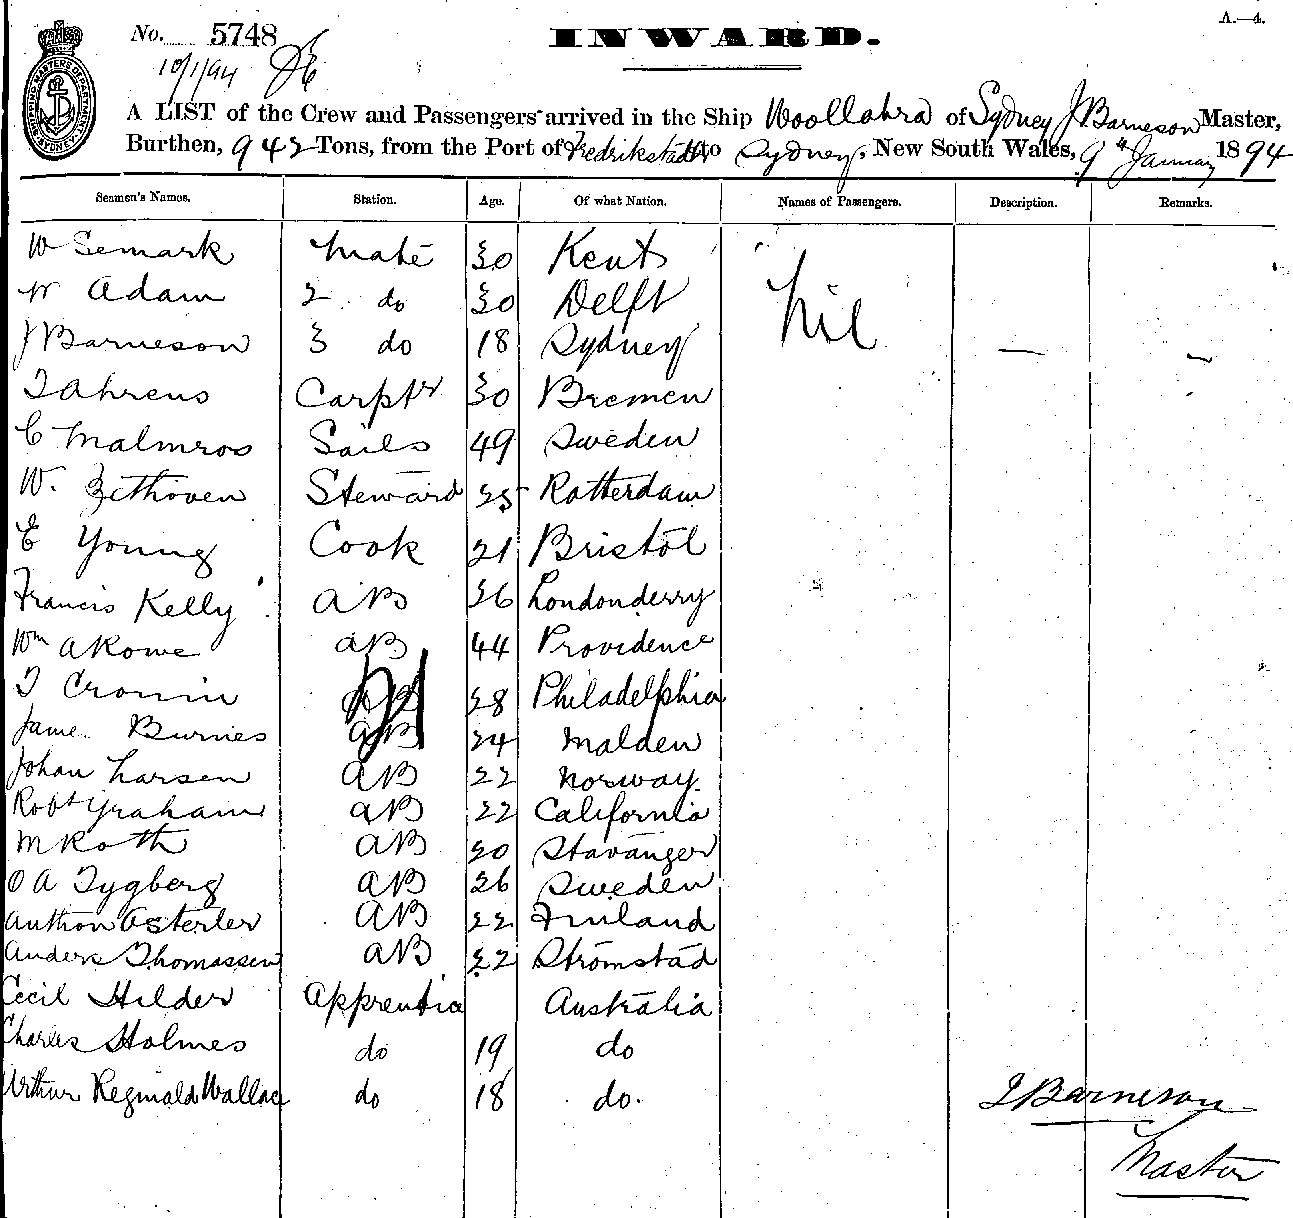 A.—4.
No. 5748
INWARD.
10/1/94
SHIPPING MASTERS DEPARTMENT SYDNEY
A LIST of the Crew and Passengers arrived in the Ship Woollahra of Sydney J Barneson Master,
Burthen, 942 Tons, from the Port of Fredrikstadt to Sydney, New South Wales, 9th January 1894
Seamen's Names. Station. Age. Of what Nation. Names of Passengers. Description. Remarks.
W Semark Mate 30 Kent Nil — —
W Adam 2 do 30 Delft
J Barneson 3 do 18 Sydney
T Ahrens Carptr 30 Bremen
C Malmros Sails 49 Sweden
W. Zethoven Steward 25 Rotterdam
E Young Cook 21 Bristol
Francis Kelly AB 26 Londonderry
Wm A Rowe AB 44 Providence
T Cronin AB 28 Philadelphia
James Burnes AB 24 Malden
Johan Larsen AB 22 Norway
Robt Graham AB 22 California
M Roth AB 20 Stavanger
O A Tygberg AB 26 Sweden
Anthon Osterler AB 22 Finland
Anders Thomassen AB 22 Strömstad
Cecil Hilder Apprentice Australia
Charles Holmes do 19 do
Arthur Reginald Wallace do 18 do.
J Barneson
Master